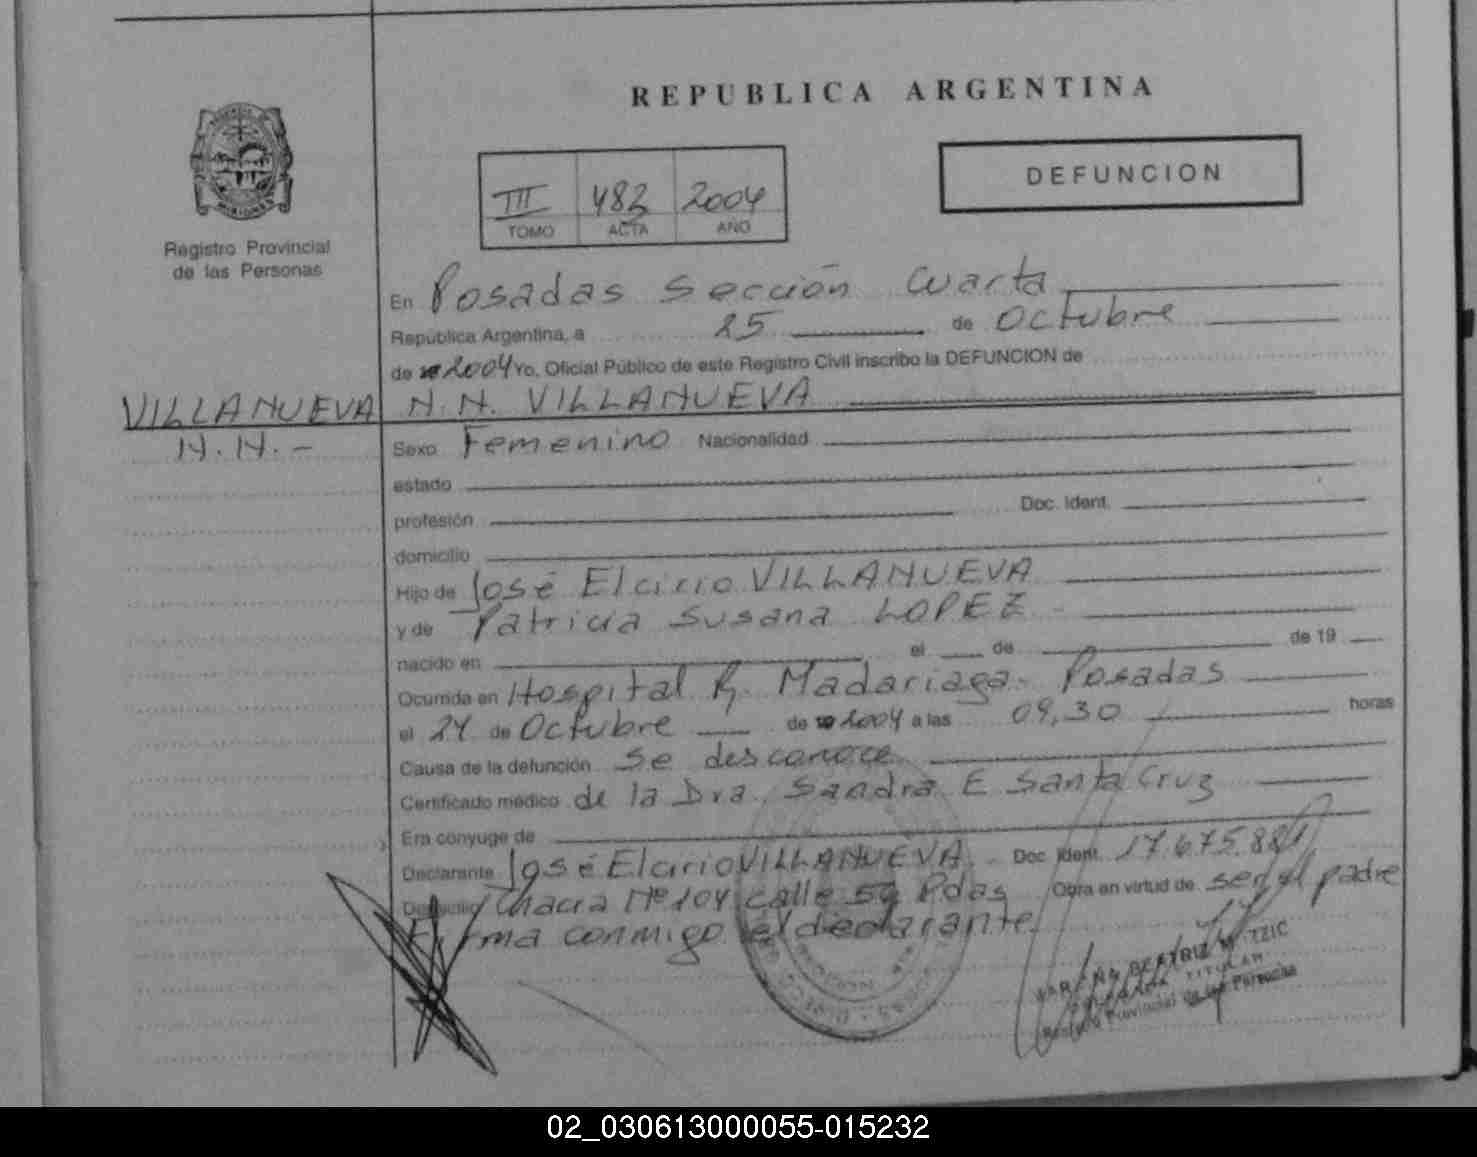 REPUBLICA ARGENTINA
DEFUNCION
III 482 2004
TOMO ACTA AÑO
Registro Provincial
de las Personas
En Posadas Sección Cuarta
República Argentina, a 25 de Octubre
de 2004 Yo, Oficial Público de este Registro Civil inscribo la DEFUNCION de
VILLANUEVA N.N. VILLANUEVA
N.N.-
Sexo Femenino Nacionalidad
estado
profesión Doc. Ident.
domicilio
Hijo de José Elcirio VILLANUEVA
y de Patricia Susana LOPEZ
nacido en el de de 19
Ocurrida en Hospital R. Madariaga - Posadas
el 24 de Octubre de 2004 a las 09,30 horas
Causa de la defunción Se desconoce
Certificado médico de la Dra. Sandra E Santa Cruz
Era cónyuge de
Declarante José Elcirio VILLANUEVA Doc. Ident. 17.675.881
Domicilio Chacra Nº 104 calle 59 Pdas Obra en virtud de ser el padre
Firma conmigo el declarante.
BEATRIZ
TITULAR
Registro Provincial de las Personas
02_030613000055-015232